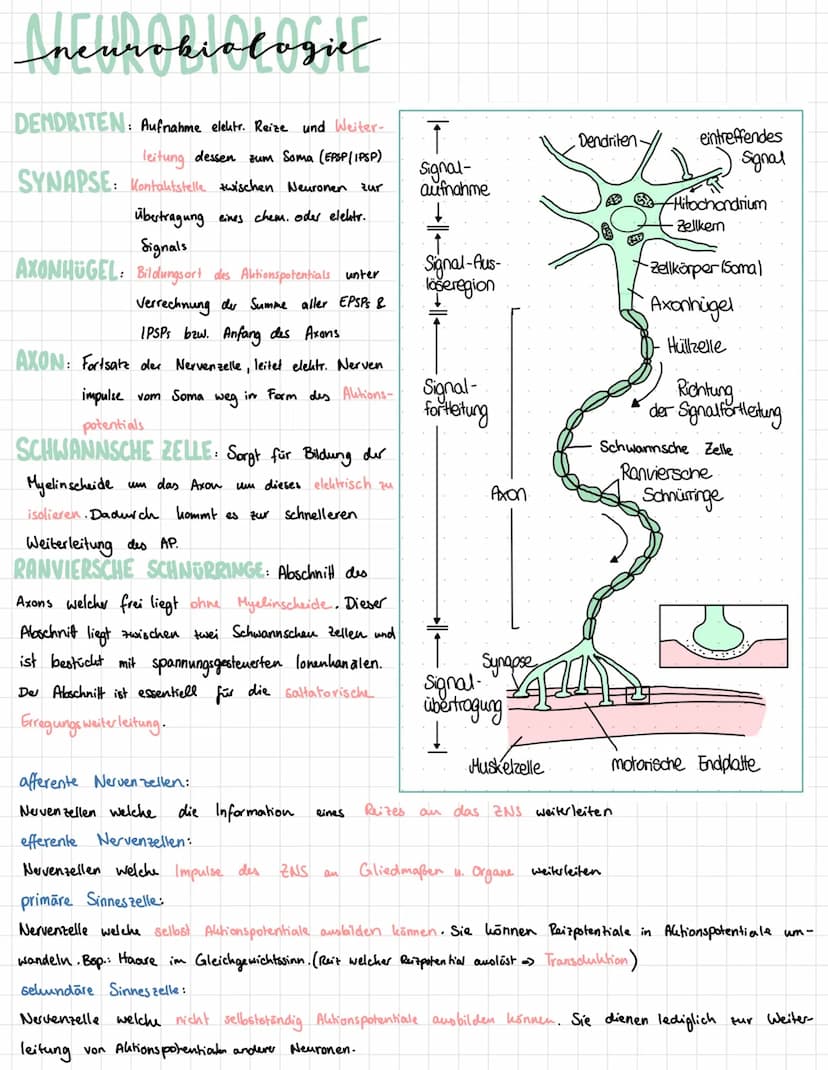 NEUROBIOLOGIE
neurobiologie
DENDRITEN: Aufnahme elektr. Reize und Weiter-
leitung dessen zum Soma (EPSP/IPSP)
SYNAPSE: Kontaktstelle zwischen Neuronen zur
Übertragung eines chem. oder elektr.
Signals
AXONHÜGEL: Bildungsort des Aktionspotentials unter
Verrechnung der Summe aller EPSPs &
IPSPs bzw. Anfang des Axons
AXON: Fortsatz der Nervenzelle, leitet elektr. Nerven
impulse vom Soma weg in Form des Aktions-
potentials
SCHWANNSCHE ZELLE: Sorgt für Bildung der
Myelinscheide um das Axon um dieses elektrisch zu
isolieren. Dadurch kommt es zur schnelleren
Weiterleitung des AP.
RANVIERSCHE SCHNÜRRINGE: Abschnitt des
Axons welcher frei liegt ohne Myelinscheide. Dieser
Abschnitt liegt zwischen zwei Schwannschen Zellen und
ist bestückt mit spannungsgesteuerten Ionenkanälen.
Der Abschnitt ist essentiell für die saltatorische
Erregungsweiterleitung.
Signal-
aufnahme
Signal-Aus-
löseregion
Signal-
fortleitung
Signal-
übertragung
Axon
Dendriten
eintreffendes
Signal
Mitochondrium
Zellkern
Zellkörper (Soma)
Axonhügel
Hüllzelle
Richtung
der Signalfortleitung
Schwannsche Zelle
Ranviersche
Schnürringe
Synapse
Muskelzelle
motorische Endplatte
afferente Nervenzellen:
Nervenzellen welche die Information eines Reizes an das ZNS weiterleiten
efferente Nervenzellen:
Nervenzellen welche Impulse des ZNS an Gliedmaßen u. Organe weiterleiten
primäre Sinneszelle:
Nervenzelle welche selbst Aktionspotentiale ausbilden können. Sie können Reizpotentiale in Aktionspotentiale um-
wandeln. Bsp.: Haare im Gleichgewichtssinn. (Reiz welcher Reizpotential auslöst => Transduktion)
sekundäre Sinneszelle:
Nervenzelle welche nicht selbstständig Aktionspotentiale ausbilden können. Sie dienen lediglich zur Weiter-
leitung von Aktionspotentialen anderer Neuronen.